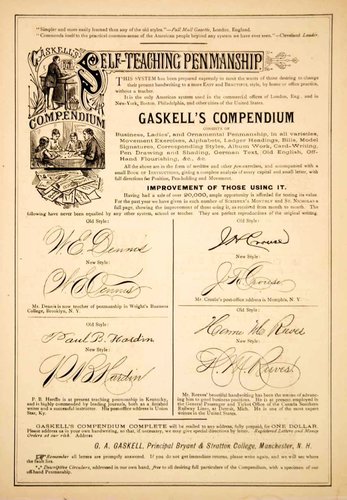 "Simpler and more easily learned than any of the old styles."—Pall Mall Gazette, London, England.
"Commends itself to the practical common-sense of the American people beyond any system we have ever seen."—Cleveland Leader.
GASKELL'S
COMPENDIUM
SELF-TEACHING PENMANSHIP.
THIS SYSTEM has been prepared expressly to meet the wants of those desiring to change
their present handwriting to a more EASY and BEAUTIFUL style, by home or office practice,
without a teacher.
It is the only American system used in the commercial offices of London, Eng. and in
New-York, Boston, Philadelphia, and other cities of the United States.
GASKELL'S COMPENDIUM
CONSISTS OF
Business, Ladies', and Ornamental Penmanship, in all varieties,
Movement Exercises, Alphabets, Ledger Headings, Bills, Model
Signatures, Corresponding Styles, Album Work, Card-Writing,
Pen Drawing and Shading, German Text, Old English, Off-
Hand Flourishing, &c., &c.
All the above are in the form of written and other PEN-EXERCISES, and accompanied with a
small BOOK OF INSTRUCTIONS, giving a complete analysis of every capital and small letter, with
full directions for Position, Pen-holding and Movement.
IMPROVEMENT OF THOSE USING IT.
Having had a sale of over 20,000, ample opportunity is afforded for testing its value
For the past year we have given in each number of SCRIBNER'S MONTHLY and ST. NICHOLAS a
full page, showing the improvement of those using it, as reported from month to month. The
following have never been equaled by any other system, school or teacher. They are perfect reproductions of the original writing.
Old Style:
W. E. Dennis
New Style:
W. E. Dennis
Mr. Dennis is now teacher of penmanship in Wright's Business
College, Brooklyn, N. Y.
Old Style:
New Style:
post-office address is Memphis,
Old Style:
Paul B. Hardin
New Style:
P. B. Hardin
P. B. is at present teaching penmanship in Kentucky,
and is highly commended by leading journals, both as a finished
writer and a successful instructor. His post-office address is Union
Star, Ky.
Old Style:
New Style:
Mr. Reeves' beautiful handwriting has been the means of advanc-
ing him to good business positions. He is at present employed in
the General Passenger and Ticket Office of the Canada Southern
Railway Lines, at Detroit, Mich. He is one of the most expert
writers in the United States.
GASKELL'S COMPENDIUM COMPLETE will be mailed to any address, fully prepaid, for ONE DOLLAR.
Please address us in your own handwriting, so that, if necessary, we may give special directions by letter. Registered Letters and Money
Orders at our risk. Address
G. A. GASKELL, Principal Bryant & Stratton College, Manchester, N. H.
Remember all letters are promptly answered. If you do not get immediate returns, please write again, and we will see where
the fault lies.
Descriptive Circulars, addressed in our own hand, free to all desiring full particulars of the Compendium, with a specimen of our
off-hand Penmanship.